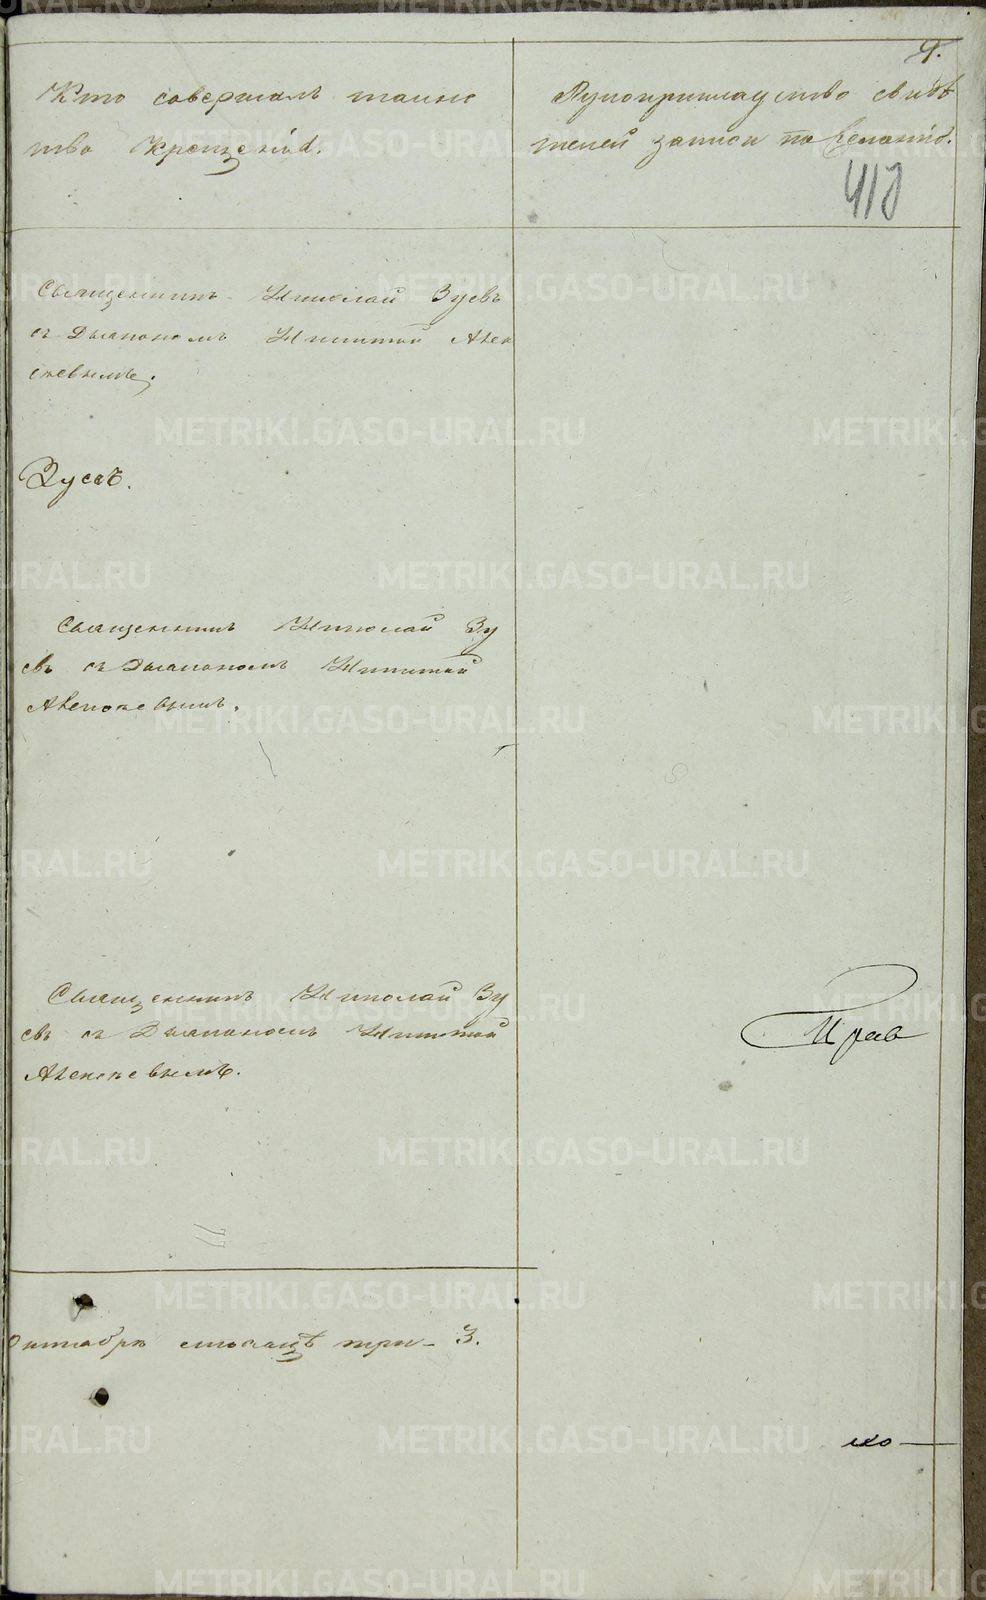 4.
Кто совершалъ таинс
тво крещенія.
Рукоприкладство свидѣ
телей записи по желанію.
410
Священникъ Николай Зуевъ
съ Дьякономъ Никитой Алек
сѣевымъ.
Зуевъ.
Священникъ Николай Зу
евъ съ Дьякономъ Никитой
Алексѣевымъ.
Священникъ Николай Зу
евъ съ Дьякономъ Никитой
Алексѣевымъ.
Октябрѣ мѣсяцѣ три - 3.
METRIKI.GASO-URAL.RU